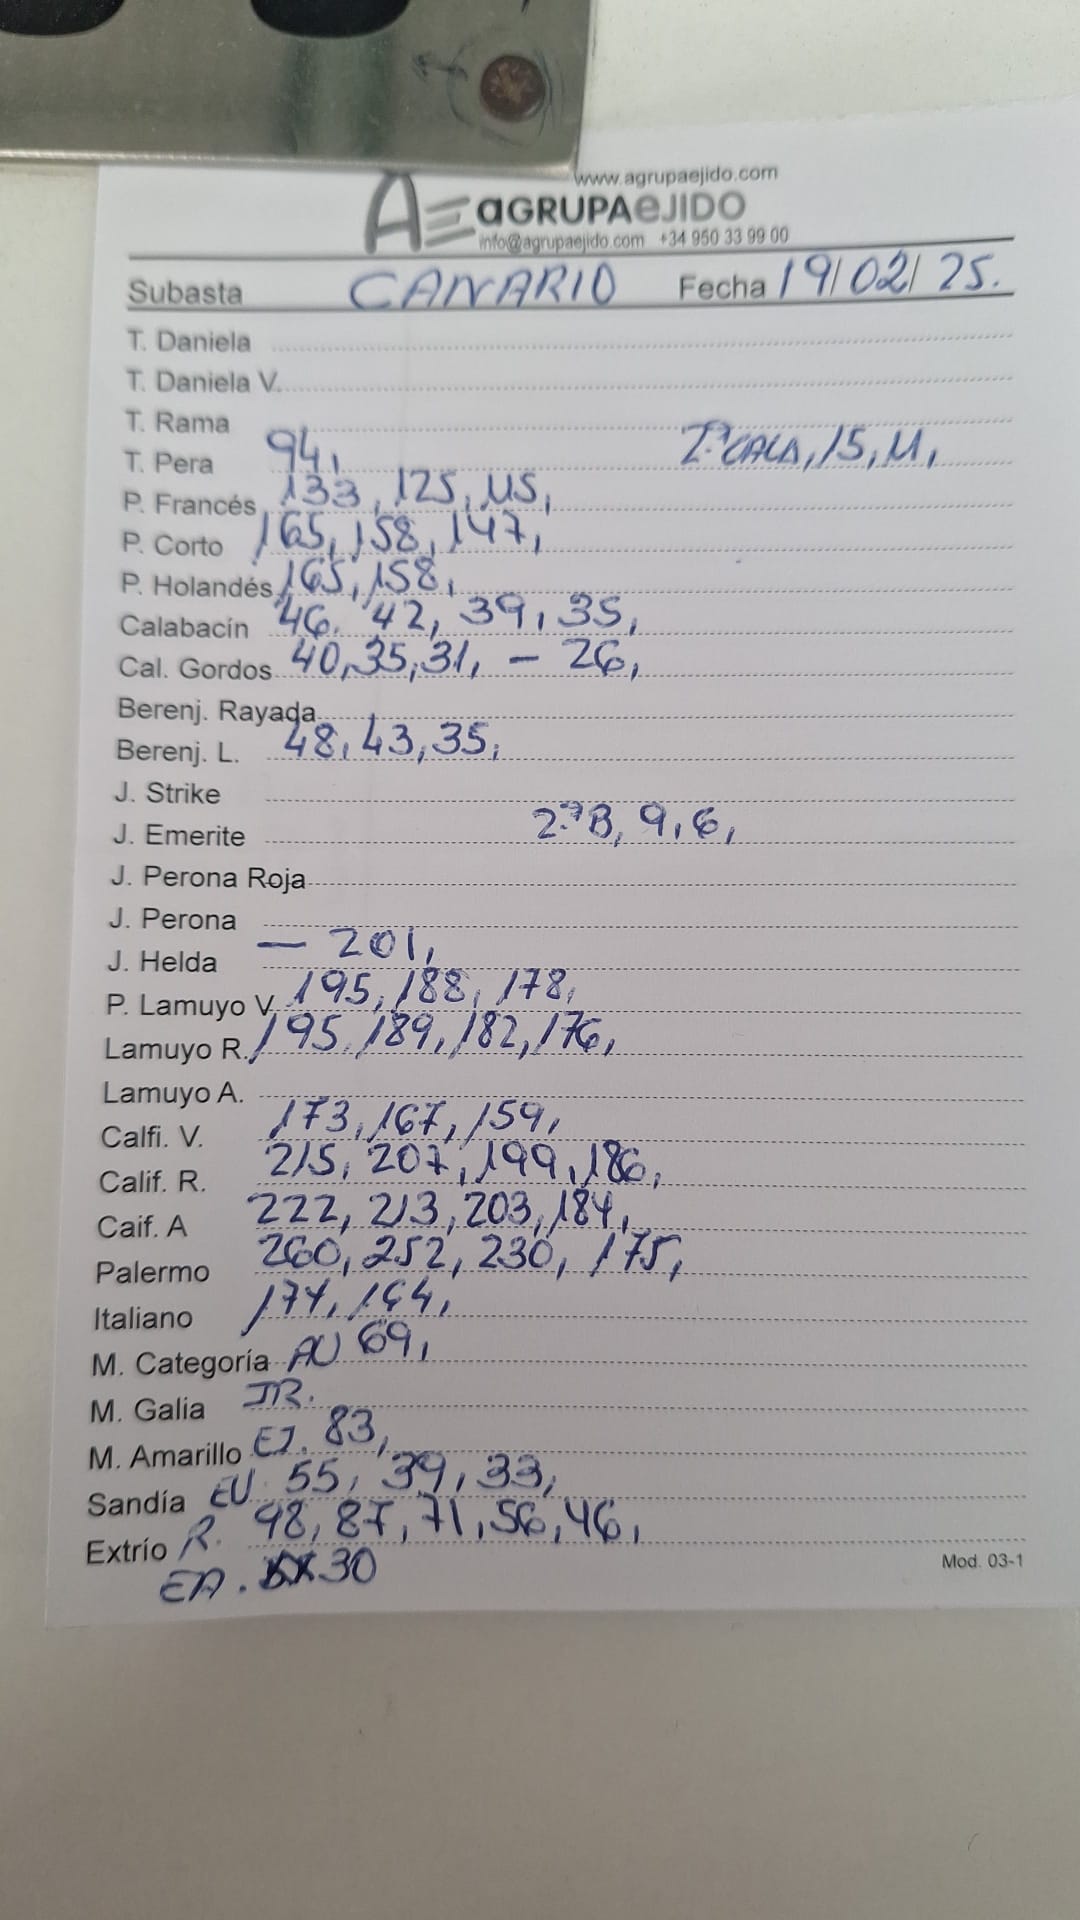 www.agrupaejido.com
AE aGRUPAeJIDO
info@agrupaejido.com +34 950 33 99 00
Subasta CANARIO Fecha 19/02/25.
T. Daniela
T. Daniela V.
T. Rama
T. Pera 94, 2ª CALA, 15, 11,
P. Francés 133, 125, 115,
P. Corto 165, 158, 147,
P. Holandés 165, 158,
Calabacín 46, 42, 39, 35,
Cal. Gordos 40, 35, 31, - 26,
Berenj. Rayada
Berenj. L. 48, 43, 35,
J. Strike
J. Emerite 2ªB, 9, 6,
J. Perona Roja
J. Perona
J. Helda — 201,
P. Lamuyo V. 195, 188, 178,
Lamuyo R. 195, 189, 182, 176,
Lamuyo A.
Calfi. V. 173, 167, 159,
Calif. R. 215, 207, 199, 186,
Caif. A 222, 213, 203, 184,
Palermo 260, 252, 230, 175,
Italiano 174, 164,
M. Categoría AU 69,
M. Galia JR.
M. Amarillo EJ. 83,
Sandía EU. 55, 39, 33,
Extrío R. 98, 87, 71, 56, 46,
EA. 30
Mod. 03-1